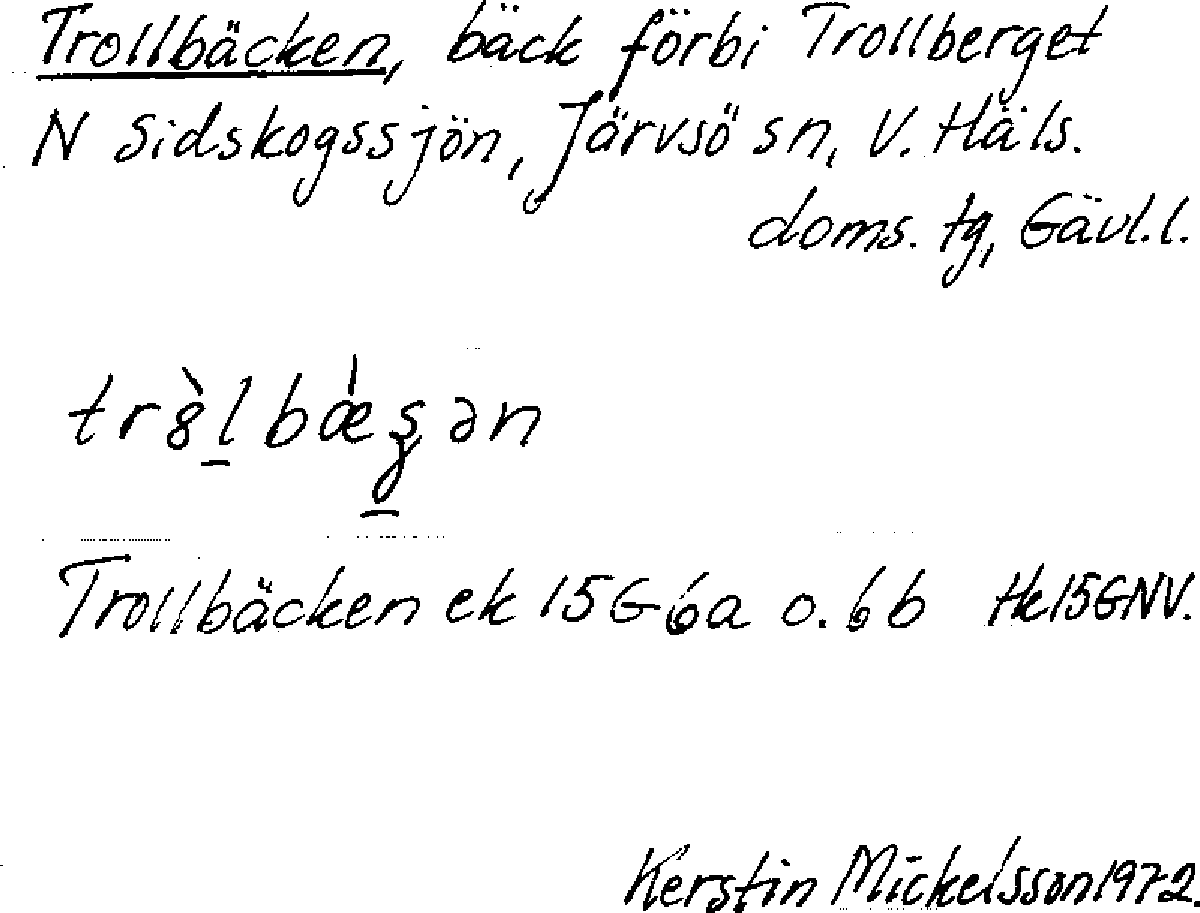 Trollbäcken, bäck förbi Trollberget
N Sidskogssjön, Järvsö sn, V. Häls.
doms. tg, Gävl.l.
Trollbäcken ek 15G6a o. 6b Hk15GNV.
Kerstin Mickelsson 1972.